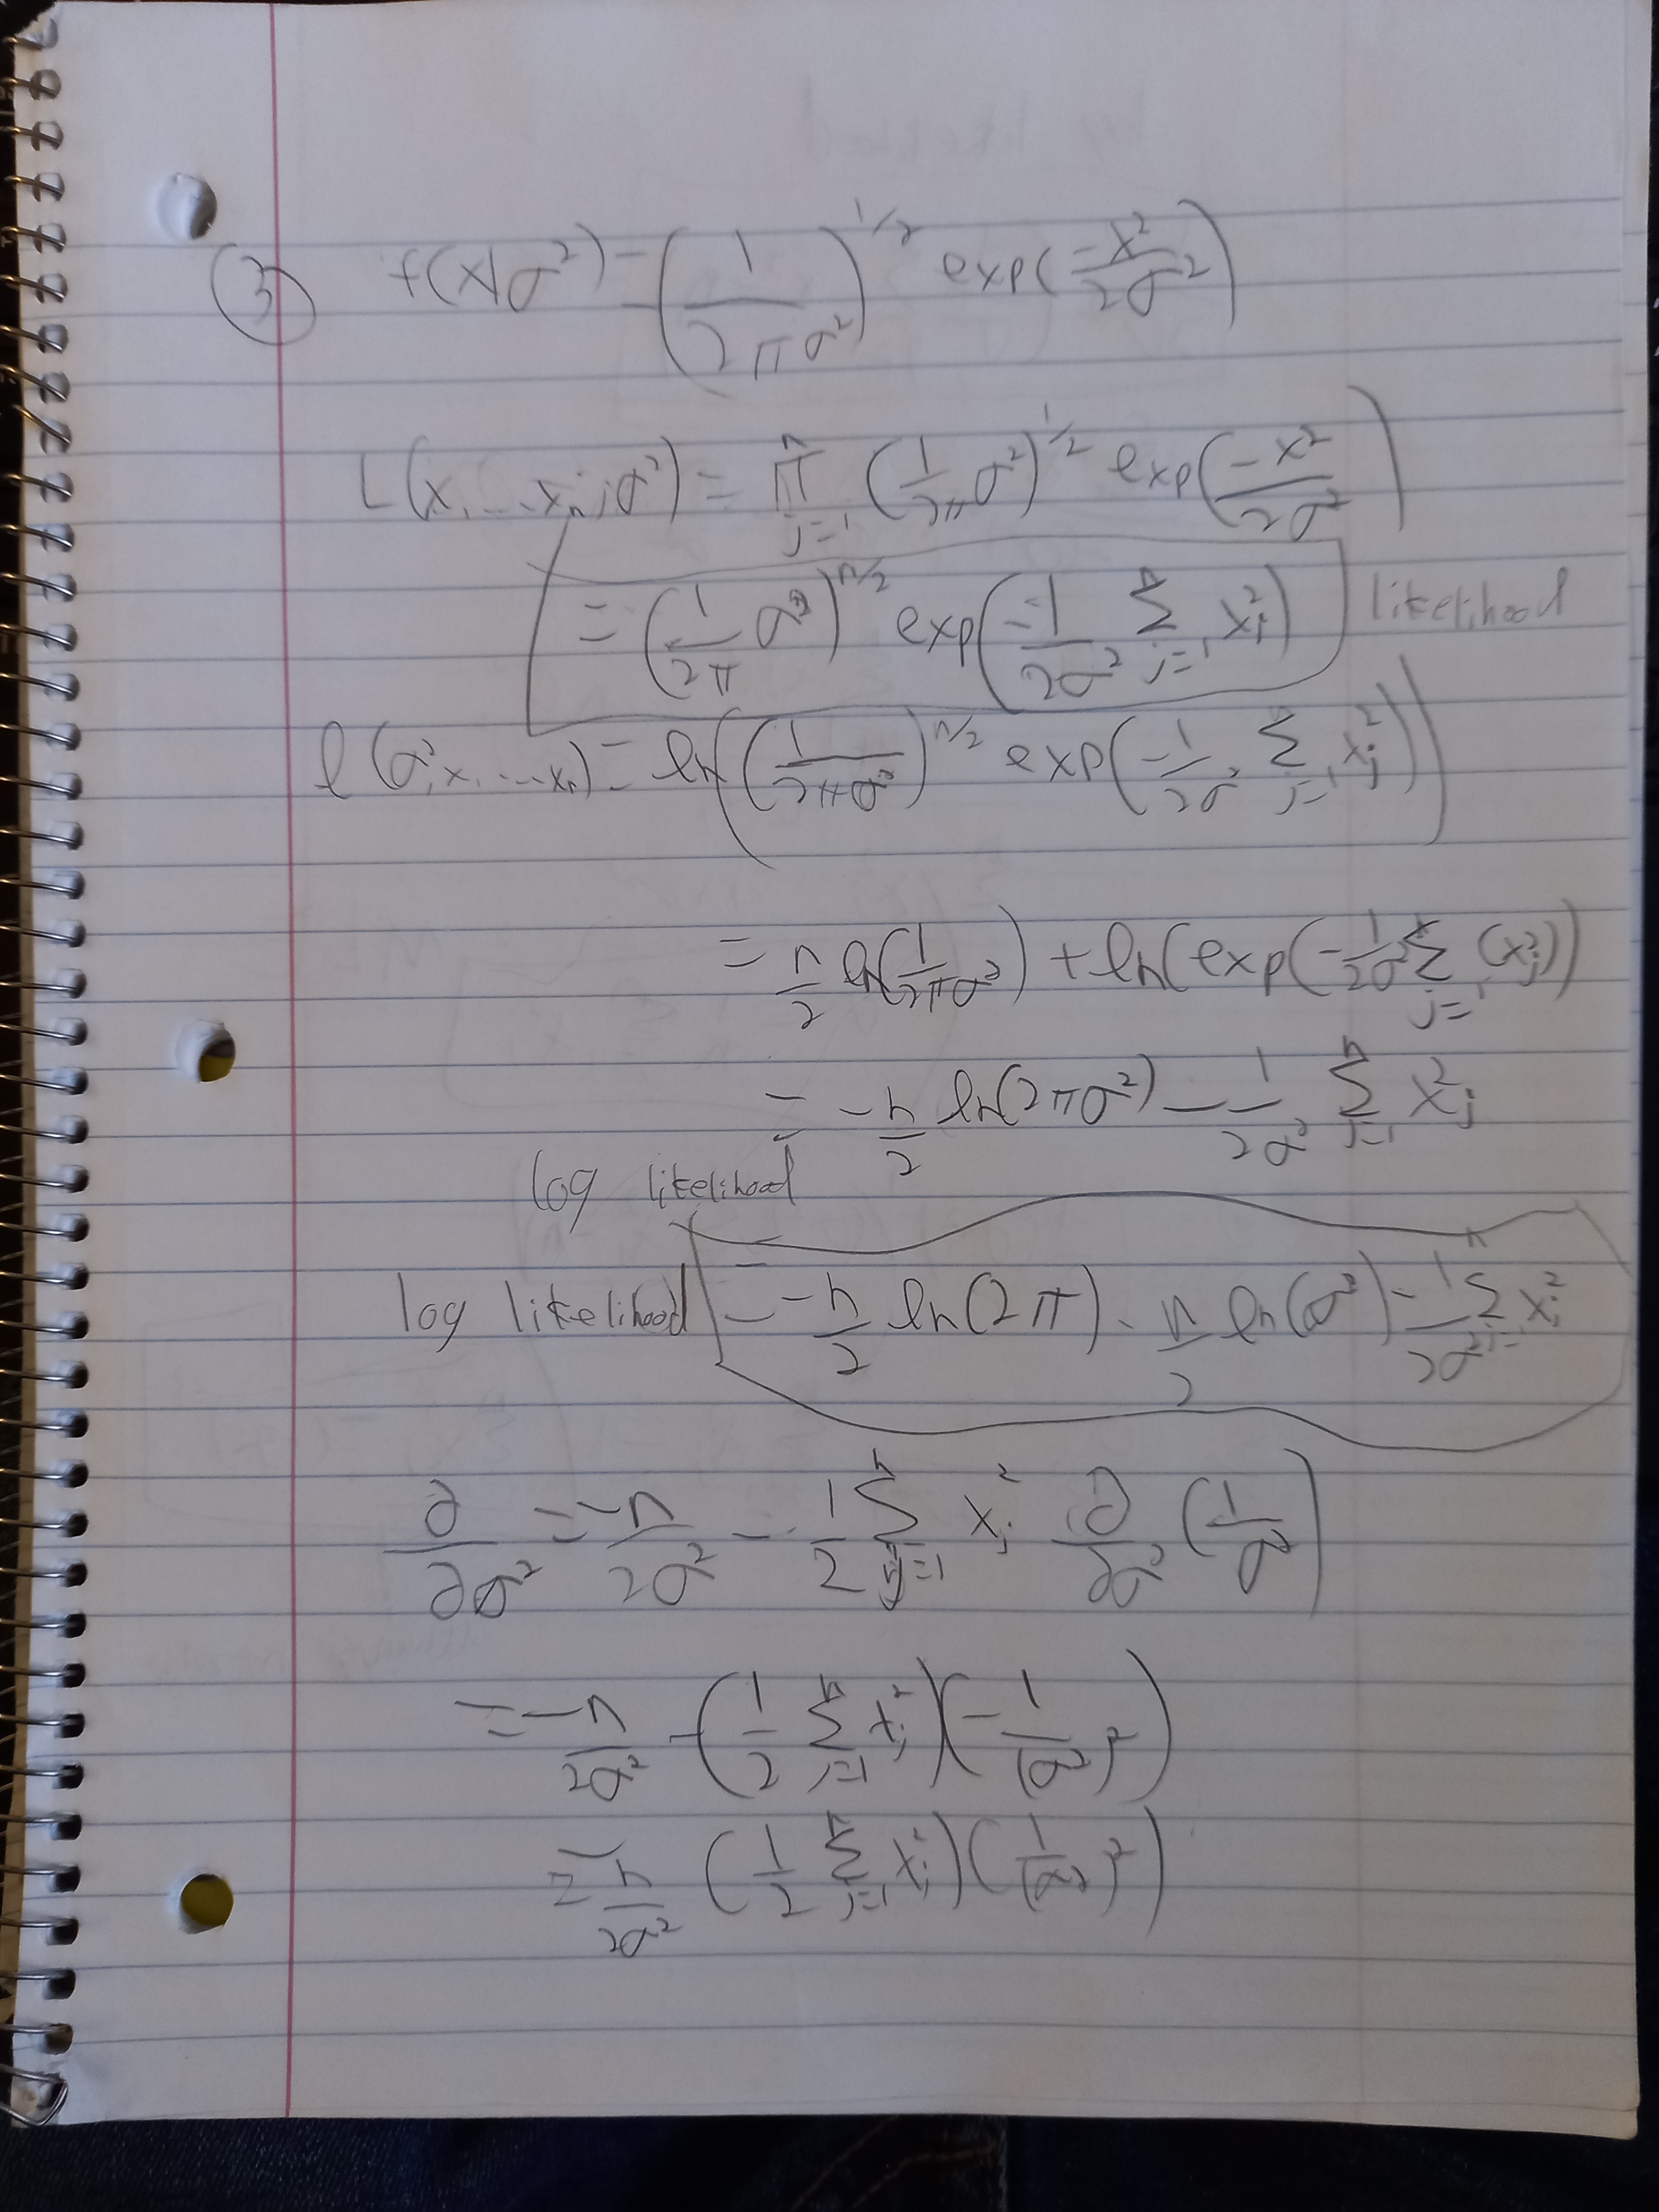 ③ f(x|σ²) = (1/(2πσ²))^(1/2) exp(-x²/(2σ²))
L(x₁...xₙ;σ²) = π_(j=1)^n (1/(2π) σ²)^(1/2) exp(-x²/(2σ²))
= (1/(2π) σ²)^(n/2) exp(-1/(2σ²) Σ_(j=1)^n x_j²) likelihood
ℓ(σ²;x₁...xₙ) = ln((1/(2πσ²))^(n/2) exp(-1/(2σ²) Σ_(j=1)^n x_j²))
= n/2 ln(1/(2πσ²)) + ln(exp(-1/(2σ²) Σ_(j=1)^n (x_j²))
= -n/2 ln(2πσ²) - 1/(2σ²) Σ_(j=1)^n x_j²
log likelihood
log likelihood = -n/2 ln(2π) - n/2 ln(σ²) - 1/(2σ²) Σ_(j=1)^n x_j²
∂/∂σ² = -n/(2σ²) - 1/2 Σ_(j=1)^n x_j² ∂/∂σ² (1/σ²)
= -n/(2σ²) - (1/2 Σ_(j=1)^n x_j²)(-1/(σ²)²)
= -n/(2σ²) (1/2 Σ_(j=1)^n x_j²)(1/(σ²)²)